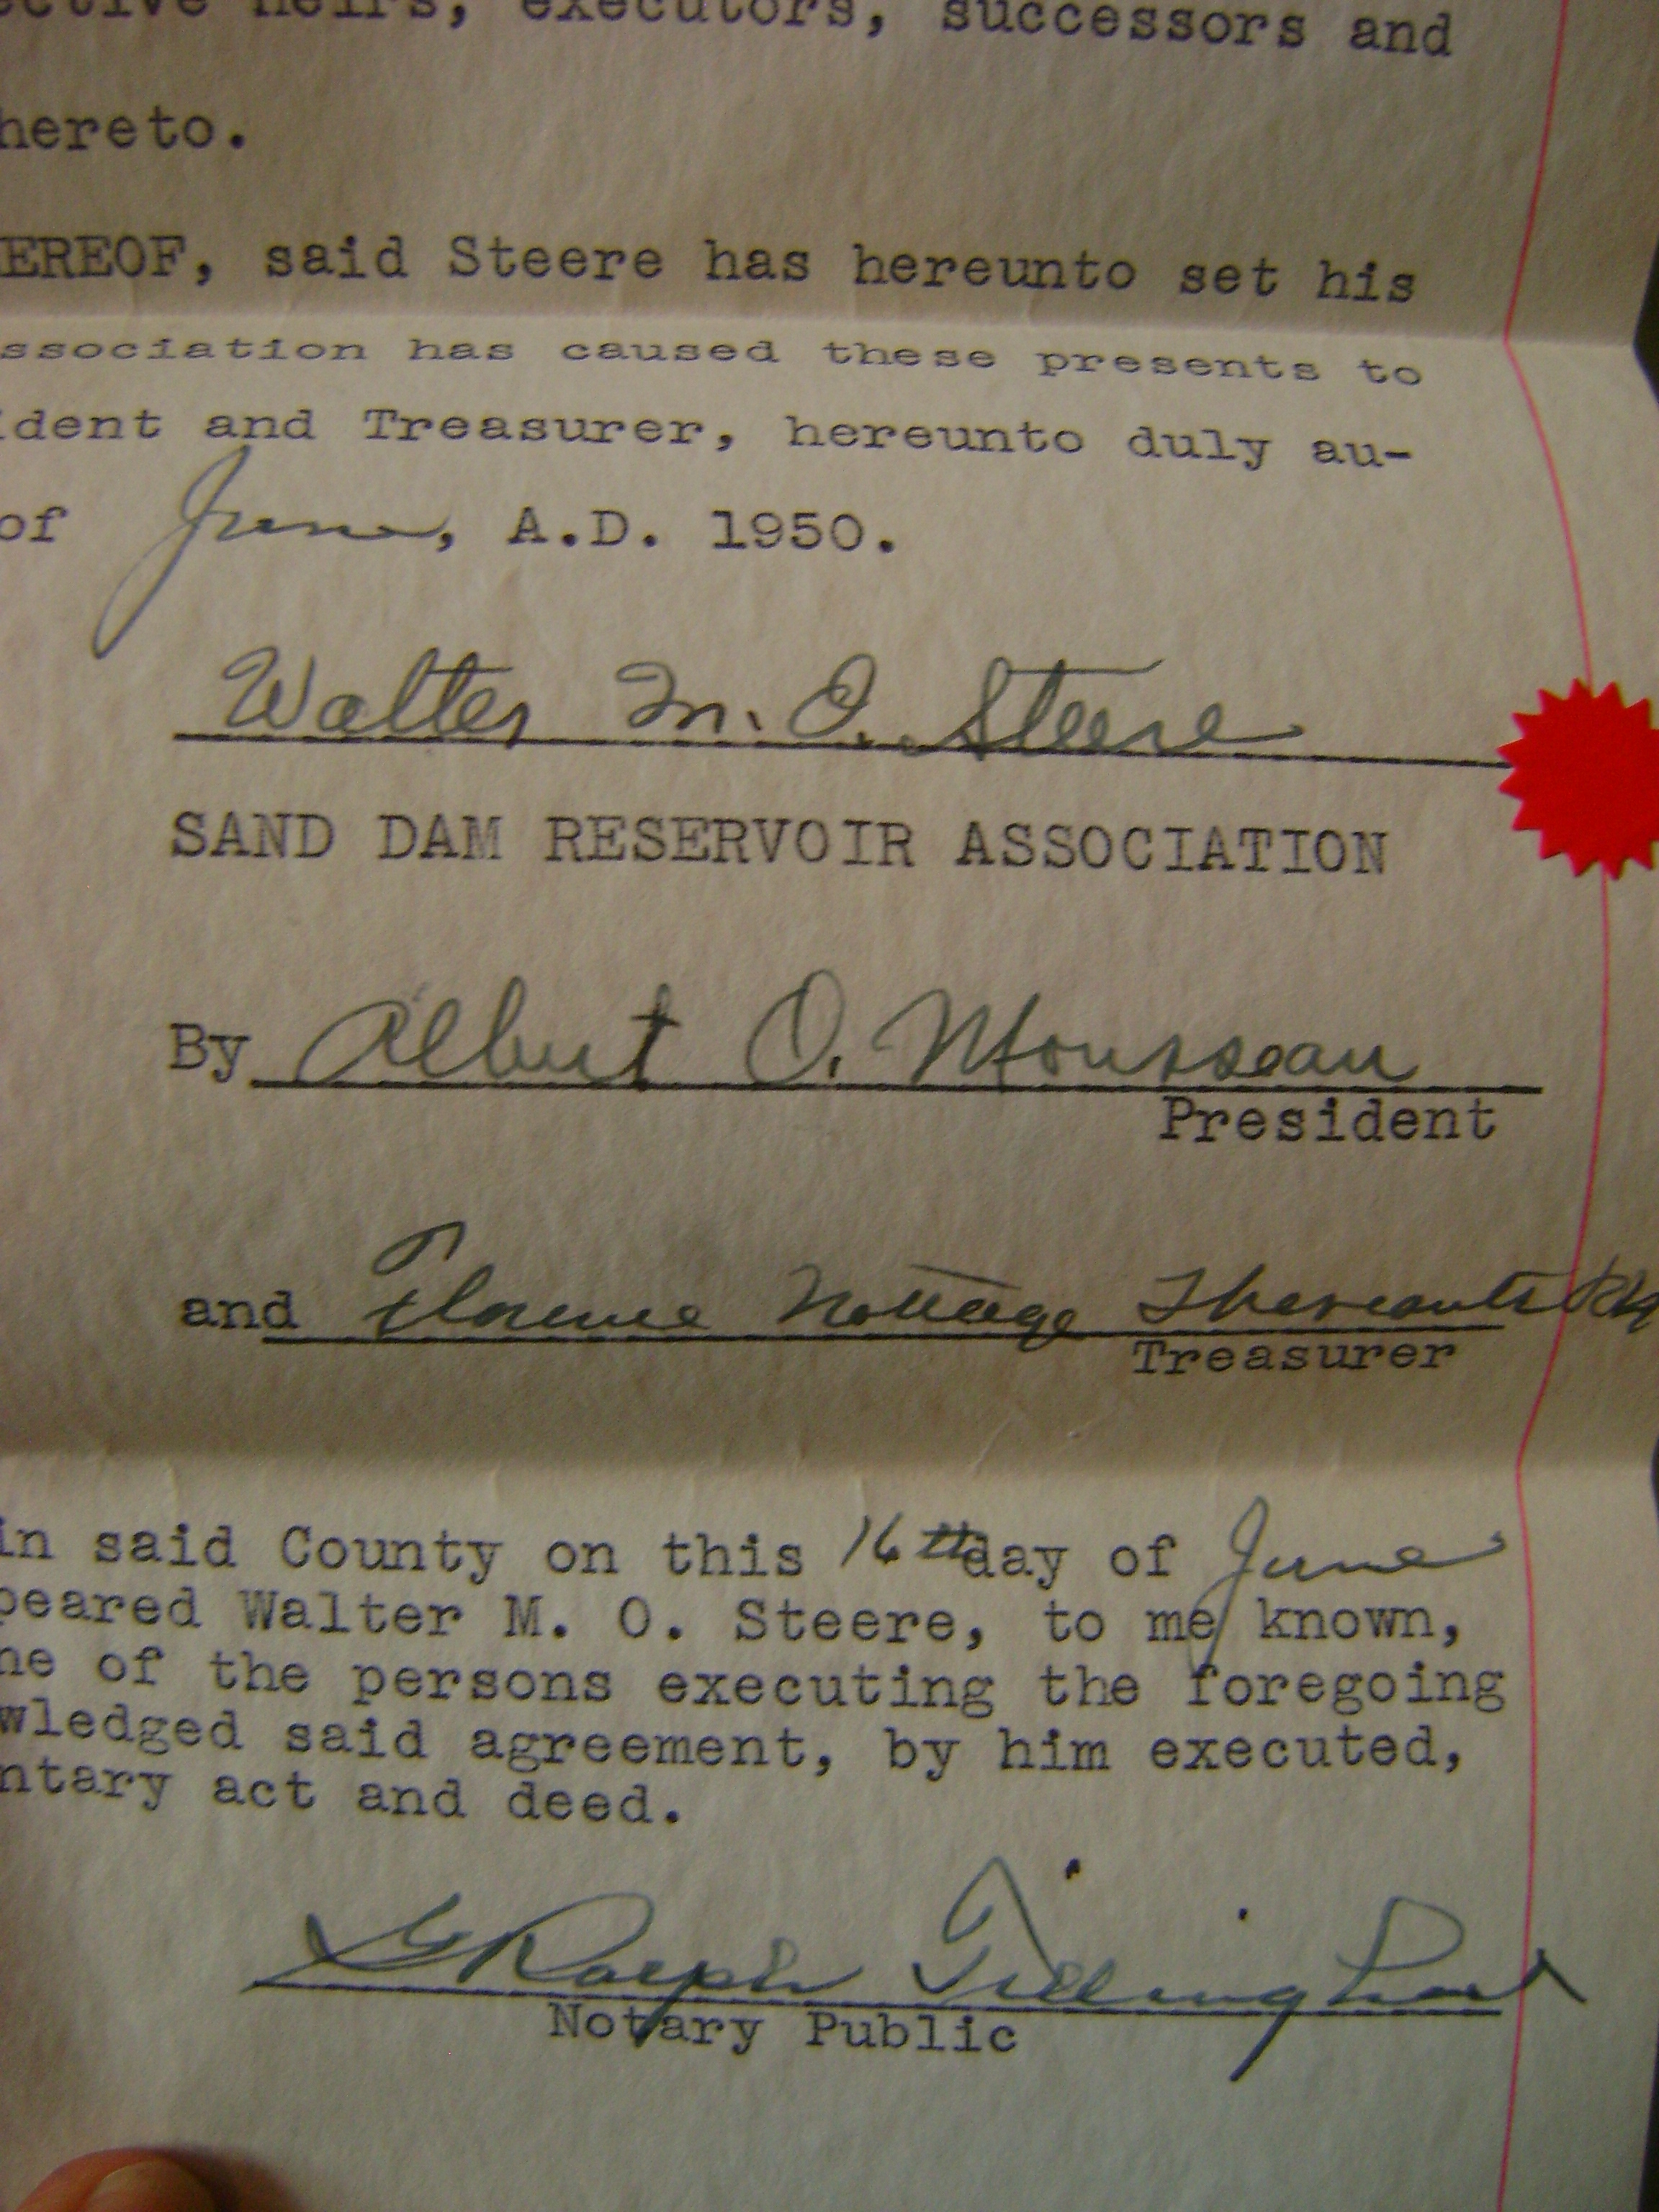 ective heirs, executors, successors and
hereto.
EREOF, said Steere has hereunto set his
ssociation has caused these presents to
ident and Treasurer, hereunto duly au-
of June, A.D. 1950.
Walter M. O. Steere
SAND DAM RESERVOIR ASSOCIATION
By Albert O. Mousseau
President
and Florence Nottage
Treasurer
in said County on this 16th day of June
peared Walter M. O. Steere, to me known,
ne of the persons executing the foregoing
wledged said agreement, by him executed,
ntary act and deed.
G Ralph Tillinghast
Notary Public